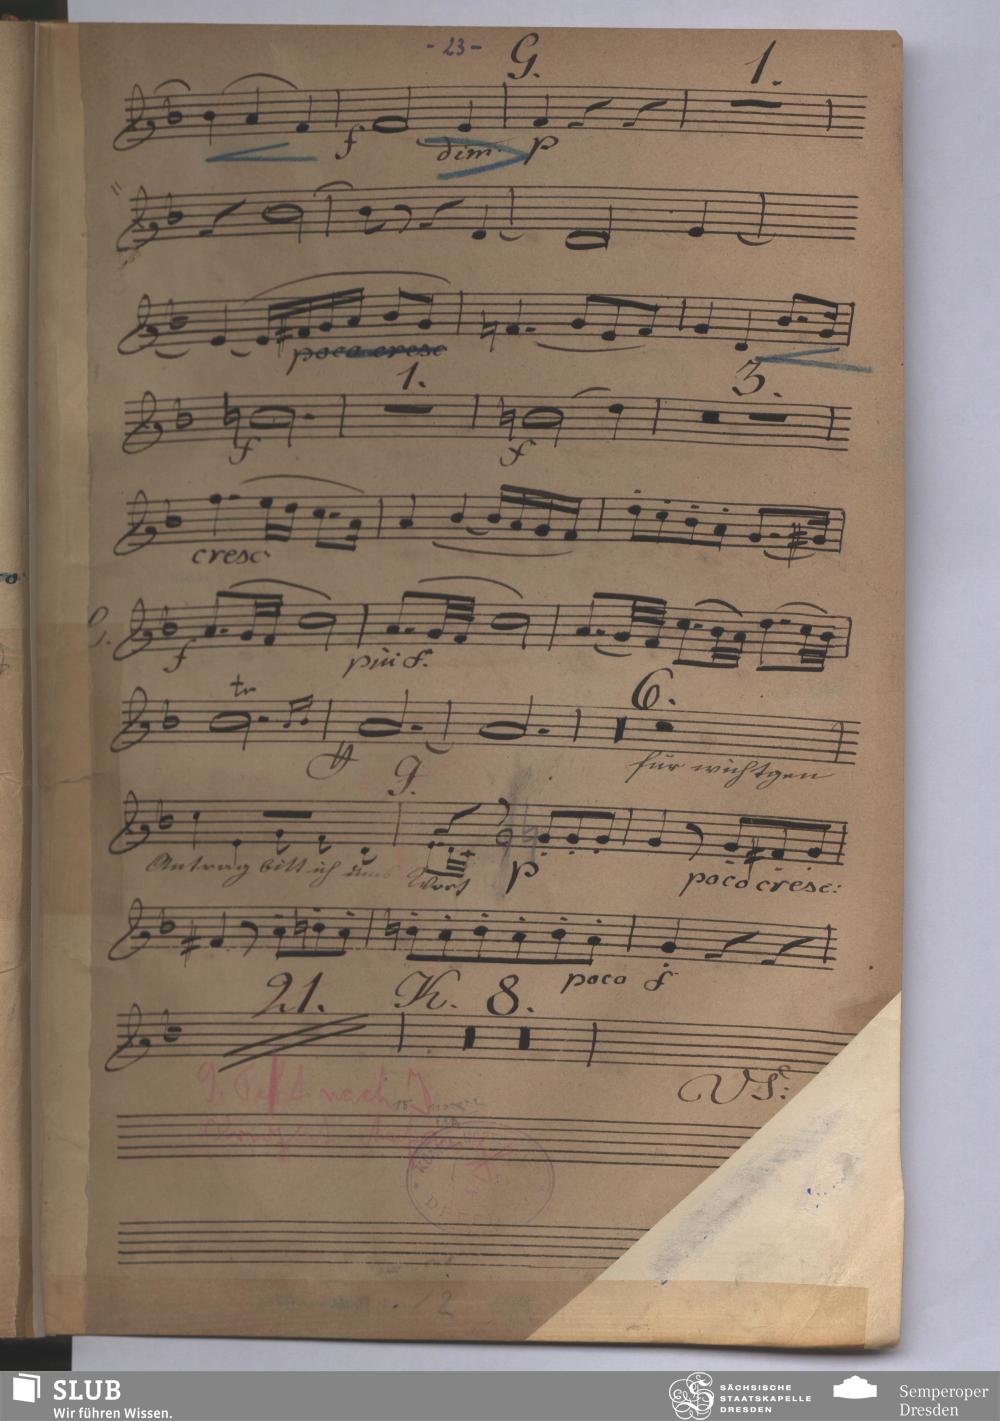 - 23 -
G.
1.
f dim p
poco cresc
1. 3.
f f
cresc
f più f.
tr
6.
ff
für wichtgen
J.
Antrag bitt ich ums Wort p poco cresc:
poco f
21. K. 8.
nach J
VS:
12
SLUB
Wir führen Wissen.
SÄCHSISCHE
STAATSKAPELLE
DRESDEN
Semperoper
Dresden